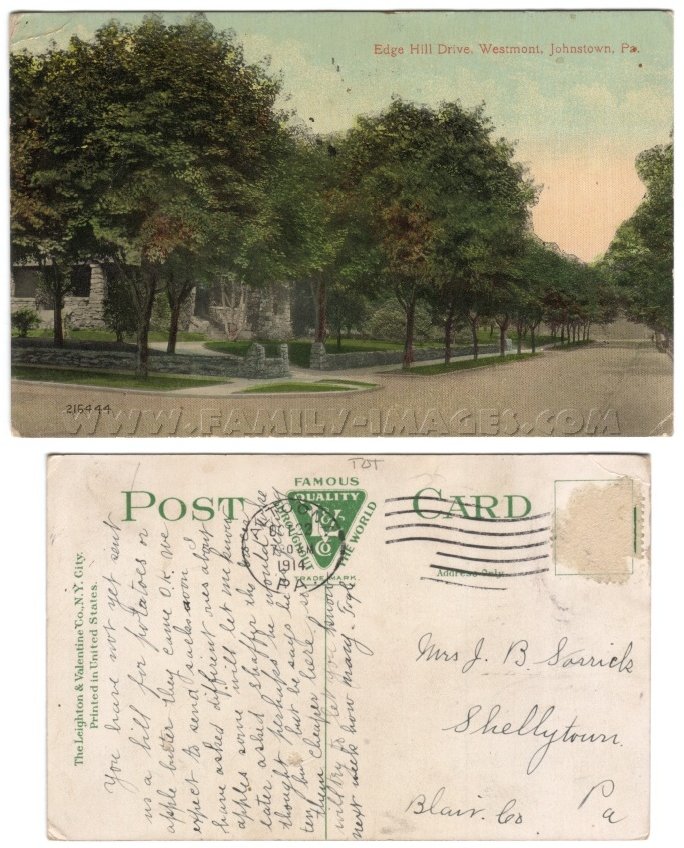 Edge Hill Drive, Westmont, Johnstown, Pa.
215444
WWW.FAMILY-IMAGES.COM
POST CARD
FAMOUS
QUALITY
THROUGHOUT THE WORLD
TRADE MARK
Address Only.
1914
PA
The Leighton & Valentine Co., N.Y. City.
Printed in United States.
You have not yet sent
us a bill for potatoes or
apple butter they came O.K. we
expect to send sacks soon I
have asked different ones about
apples some will let me know
later asked Shaffer the
thought perhaps he would take
ten but he says he
buy them cheaper here so
will try to let you know
next week how many.
Mrs J. B. Sorrick
Shellytown.
Blair. Co. Pa